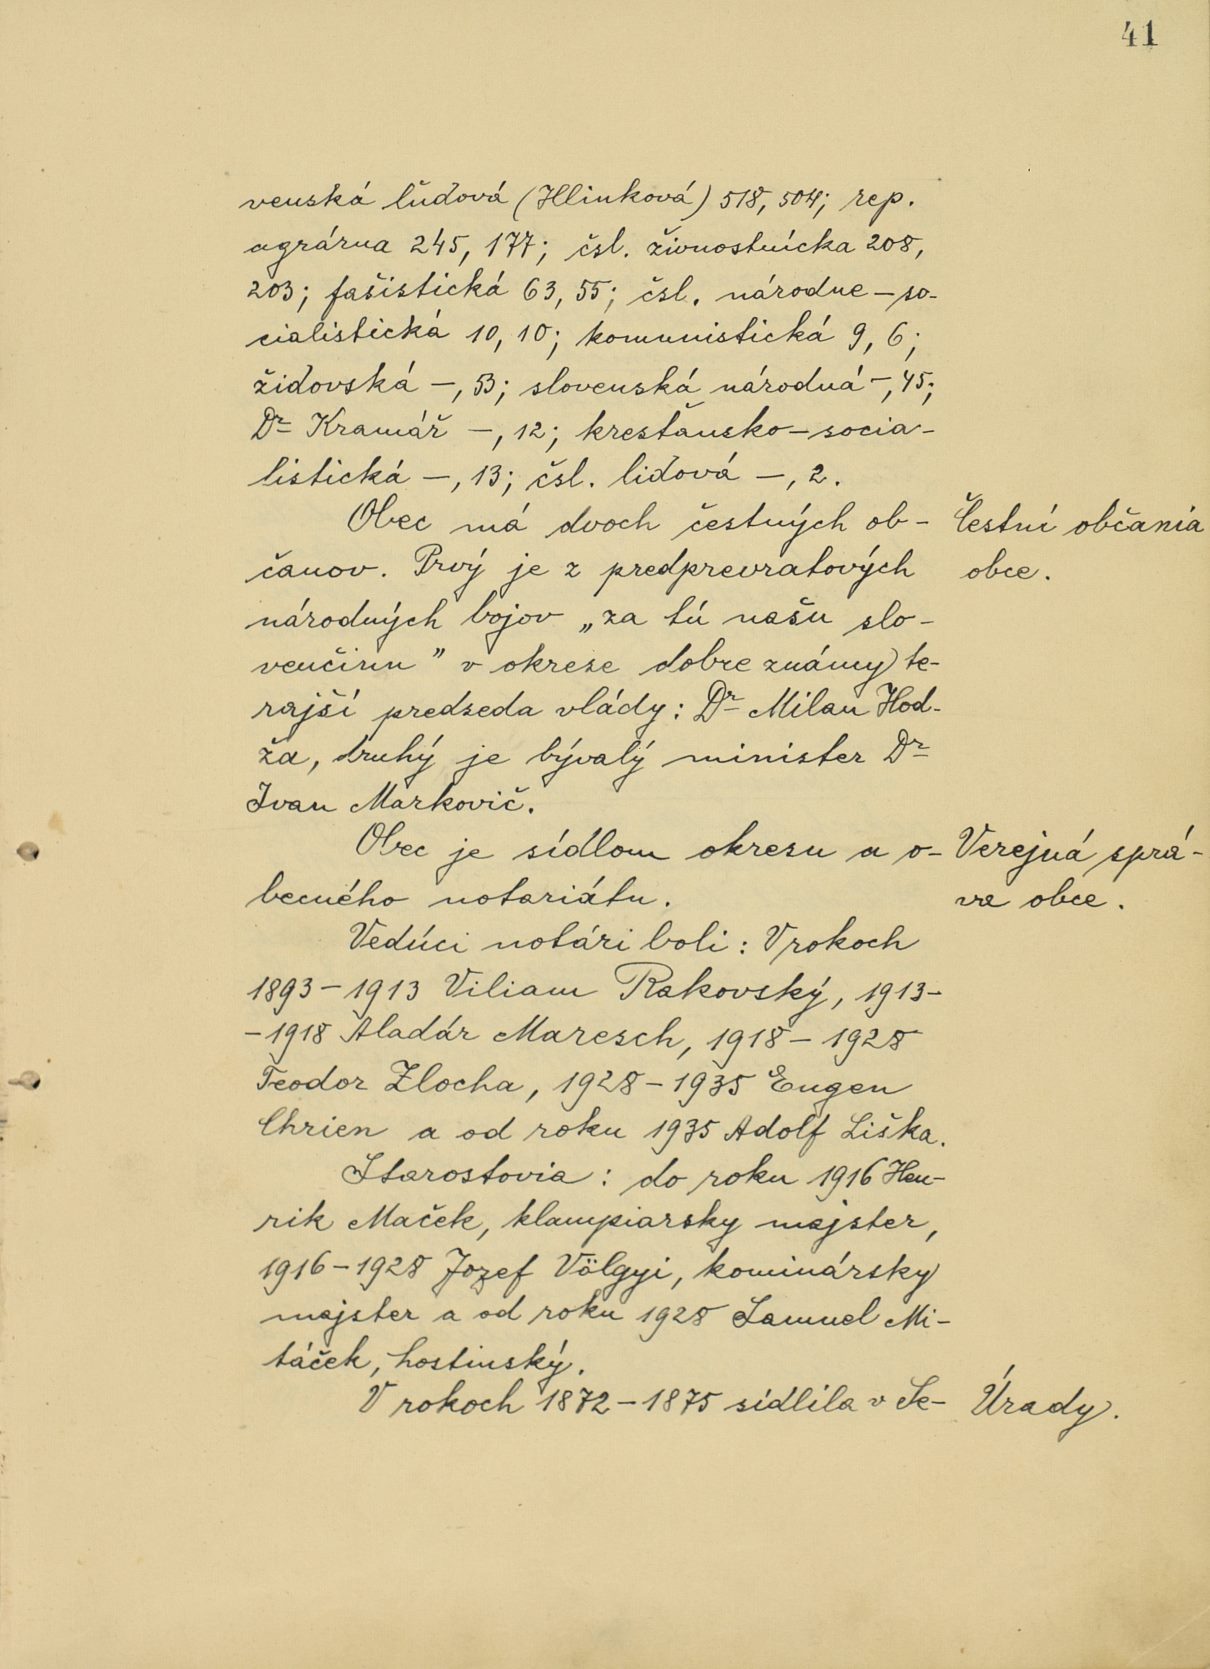 41
venská ľudová (Hlinková) 518, 504; rep.
agrárna 245, 177; čsl. živnostnícka 208,
203; fašistická 63, 55; čsl. národne-so-
cialistická 10, 10; komunistická 9, 6;
židovská -, 53; slovenská národná -, 45;
Dr Kramář -, 12; kresťansko-socia-
listická -, 13; čsl. lidová -, 2.
Obec má dvoch čestných ob-
čanov. Prvý je z predprevratových
národných bojov „za tú našu slo-
venčinu" v okrese dobre známy te-
rajší predseda vlády: Dr Milan Hod-
ža, druhý je bývalý minister Dr
Ivan Markovič.
Čestní občania
obce.
Obec je sídlom okresu a o-
becného notariátu.
Verejná sprá-
va obce.
Vedúci notári boli: V rokoch
1893-1913 Viliam Rakovský, 1913-
-1918 Aladár Maresch, 1918-1928
Teodor Zlocha, 1928-1935 Eugen
Chrien a od roku 1935 Adolf Liška.
Starostovia: do roku 1916 Hen-
rik Maček, klampiarsky majster,
1916-1928 Jozef Völgyi, kominársky
majster a od roku 1928 Samuel Mi-
táček, hostinský.
V rokoch 1872-1875 sídlila v Se-
Úrady.